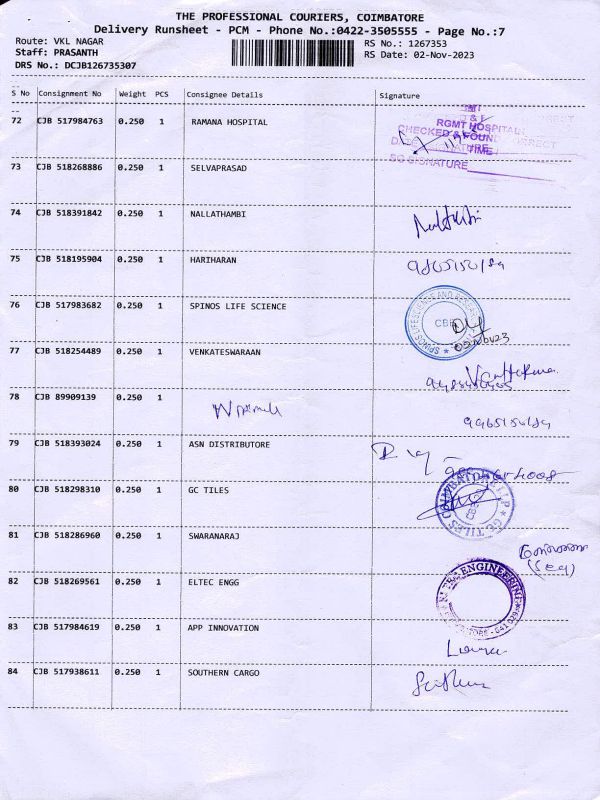 THE PROFESSIONAL COURIERS, COIMBATORE
Delivery Runsheet - PCM - Phone No.:0422-3505555 - Page No.:7
Route: VKL NAGAR RS No.: 1267353
Staff: PRASANTH RS Date: 02-Nov-2023
DRS No.: DCJB126735307
S No Consignment No Weight PCS Consignee Details Signature
72 CJB 517984763 0.250 1 RAMANA HOSPITAL
RGMT HOSPITAL
CHECKED & FOUND CORRECT
TIME
SIGNATURE
73 CJB 518268886 0.250 1 SELVAPRASAD
74 CJB 518391842 0.250 1 NALLATHAMBI
75 CJB 518195904 0.250 1 HARIHARAN
76 CJB 517983682 0.250 1 SPINOS LIFE SCIENCE
SPINOS LIFE SCIENCE AND RESEARCH
CBE
02Nov23
77 CJB 518254489 0.250 1 VENKATESWARAAN
78 CJB 89909139 0.250 1
79 CJB 518393024 0.250 1 ASN DISTRIBUTORE
80 CJB 518298310 0.250 1 GC TILES
GC TILES LLP * COIMBATORE
81 CJB 518286960 0.250 1 SWARANARAJ
82 CJB 518269561 0.250 1 ELTEC ENGG
ENGINEERING
641 029
83 CJB 517984619 0.250 1 APP INNOVATION
84 CJB 517938611 0.250 1 SOUTHERN CARGO